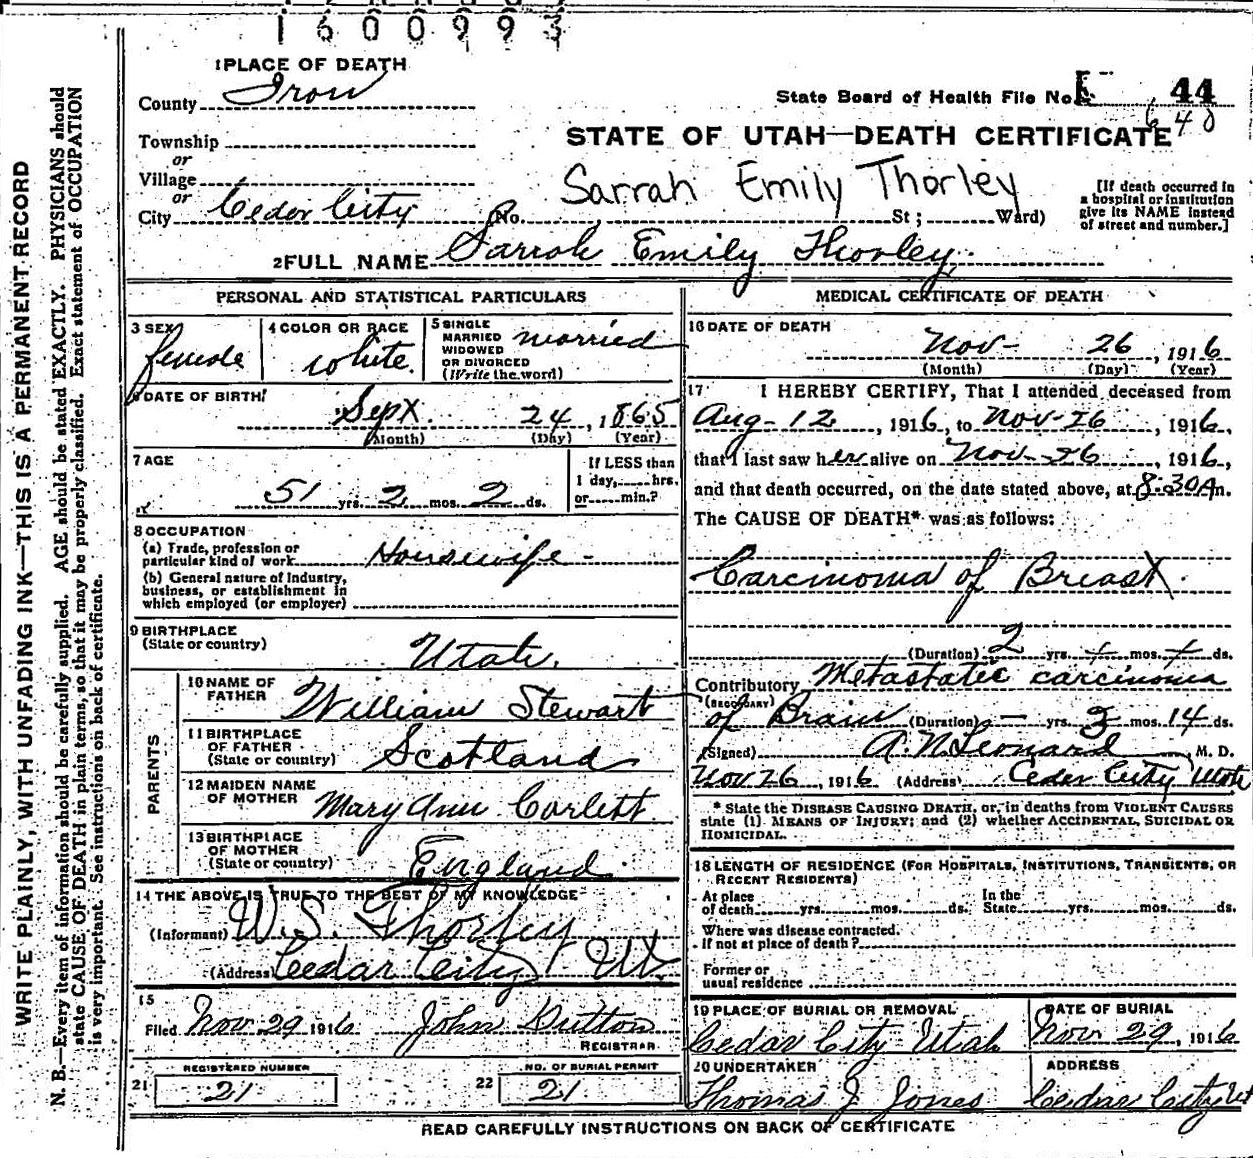 1600993
1 PLACE OF DEATH
County Iron
State Board of Health File No. 44
640
Township
or
Village
or
City Cedar City (No. St; Ward)
STATE OF UTAH—DEATH CERTIFICATE
Sarrah Emily Thorley
[If death occurred in
a hospital or institution
give its NAME instead
of street and number.]
2 FULL NAME Sarrah Emily Thorley
PERSONAL AND STATISTICAL PARTICULARS
3 SEX female
4 COLOR OR RACE white.
5 SINGLE
MARRIED
WIDOWED
OR DIVORCED
(Write the word) married
6 DATE OF BIRTH
Sept 24, 1865
(Month) (Day) (Year)
7 AGE
51 yrs. 2 mos. 2 ds.
If LESS than
1 day, hrs.
or min.?
8 OCCUPATION
(a) Trade, profession or
particular kind of work Housewife
(b) General nature of Industry,
business, or establishment in
which employed (or employer)
9 BIRTHPLACE
(State or country) Utah.
PARENTS
10 NAME OF
FATHER William Stewart
11 BIRTHPLACE
OF FATHER
(State or country) Scotland
12 MAIDEN NAME
OF MOTHER Mary Ann Corlett
13 BIRTHPLACE
OF MOTHER
(State or country) England
14 THE ABOVE IS TRUE TO THE BEST OF MY KNOWLEDGE
(Informant) W.S. Thorley
(Address) Cedar City Ut.
15
Filed Nov 29 1916 John
REGISTRAR
REGISTERED NUMBER
21 21
NO. OF BURIAL PERMIT
22 21
MEDICAL CERTIFICATE OF DEATH
16 DATE OF DEATH
Nov- 26, 1916
(Month) (Day) (Year)
17 I HEREBY CERTIFY, That I attended deceased from
Aug-12, 1916, to Nov-26, 1916,
that I last saw her alive on Nov-26, 1916,
and that death occurred, on the date stated above, at 8:30 A m.
The CAUSE OF DEATH* was as follows:
Carcinoma of Breast.
(Duration) 2 yrs. + mos. + ds.
Contributory Metastatic carcinoma
(SECONDARY)
of Brain (Duration) — yrs. mos. 14 ds.
(Signed) A.N. Leonard, M. D.
Nov 26, 1916 (Address) Cedar City Utah
* State the DISEASE CAUSING DEATH, or, in deaths from VIOLENT CAUSES
state (1) MEANS OF INJURY; and (2) whether ACCIDENTAL, SUICIDAL OR
HOMICIDAL.
18 LENGTH OF RESIDENCE (FOR HOSPITALS, INSTITUTIONS, TRANSIENTS, OR
RECENT RESIDENTS)
At place
of death yrs. mos. ds.
In the
State yrs. mos. ds.
Where was disease contracted.
If not at place of death?
Former or
usual residence
19 PLACE OF BURIAL OR REMOVAL
Cedar City Utah
DATE OF BURIAL
Nov 29, 1916
20 UNDERTAKER
Thomas J Jones
ADDRESS
Cedar City Ut
READ CAREFULLY INSTRUCTIONS ON BACK OF CERTIFICATE
WRITE PLAINLY, WITH UNFADING INK—THIS IS A PERMANENT RECORD
N. B.—Every item of information should be carefully supplied. AGE should be stated EXACTLY. PHYSICIANS should
state CAUSE OF DEATH in plain terms, so that it may be properly classified. Exact statement of OCCUPATION
is very important. See instructions on back of certificate.